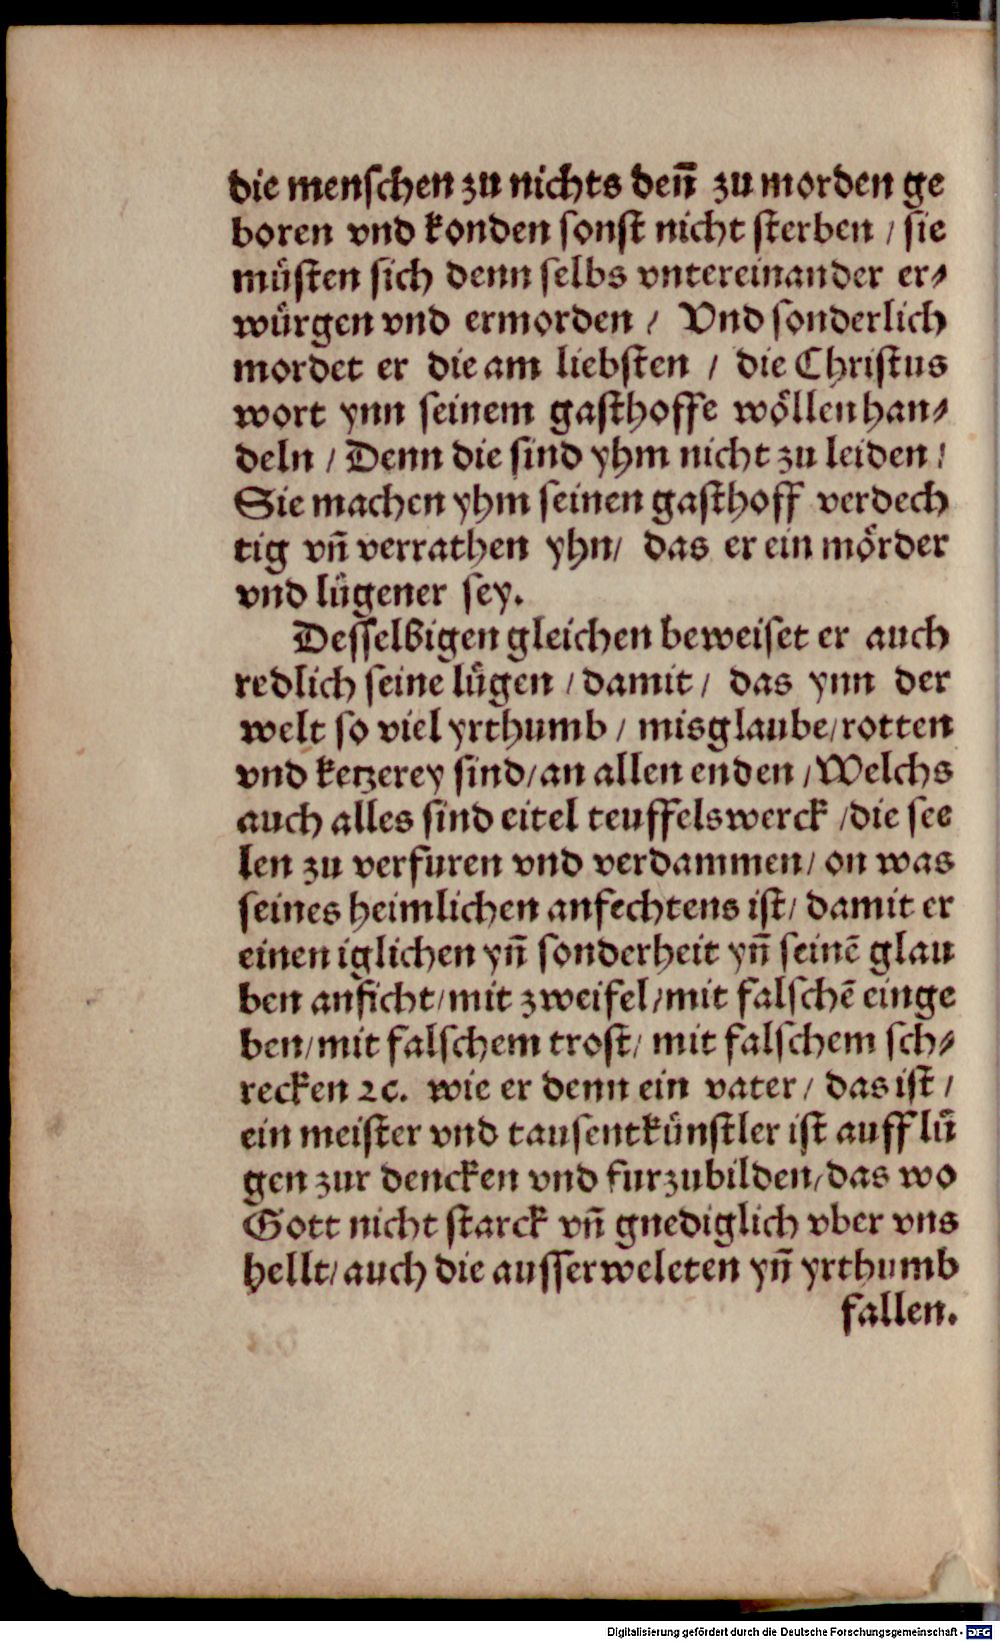 die menschen zu nichts deñ zu morden ge
boren vnd konden sonst nicht sterben / sie
müsten sich denn selbs vntereinander er⸗
würgen vnd ermorden / Vnd sonderlich
mordet er die am liebsten / die Christus
wort ynn seinem gasthoffe wöllen han⸗
deln / Denn die sind yhm nicht zu leiden /
Sie machen yhm seinen gasthoff verdech
tig vñ verrathen yhn / das er ein mörder
vnd lügener sey.
Desselbigen gleichen beweiset er auch
redlich seine lügen / damit / das ynn der
welt so viel yrthumb / misglaube / rotten
vnd ketzerey sind / an allen enden / Welchs
auch alles sind eitel teuffelswerck / die see
len zu verfuren vnd verdammen / on was
seines heimlichen anfechtens ist / damit er
einen iglichen yñ sonderheit yñ seinē glau
ben anficht / mit zweifel / mit falschē einge
ben / mit falschem trost / mit falschem sch⸗
recken ꝛc. wie er denn ein vater / das ist /
ein meister vnd tausentkünstler ist auff lü
gen zur dencken vnd furzubilden / das wo
Gott nicht starck vñ gnediglich vber vns
hellt / auch die ausserweleten yñ yrthumb
fallen.
Digitalisierung gefördert durch die Deutsche Forschungsgemeinschaft - DFG